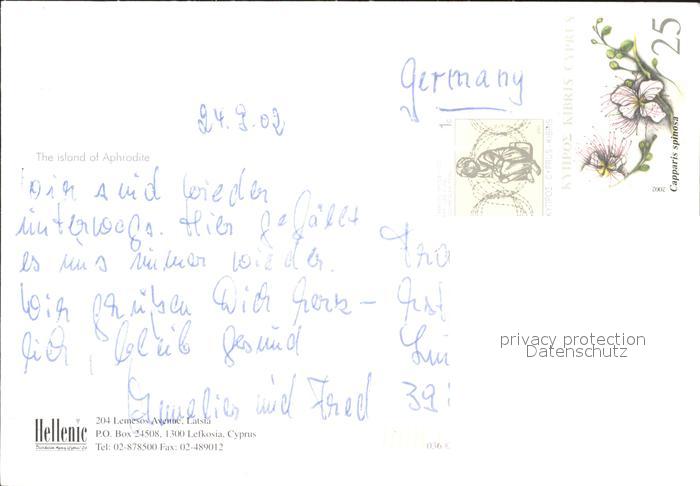 Germany
24.9.02
The island of Aphrodite
Wir sind wieder
unterwegs. Hier gefällt
es uns immer wieder.
Wir grüßen Dich herz-
lich, bleib gesund
und Fred
39
25
ΚΥΠΡΟΣ KIBRIS CYPRUS
Capparis spinosa
2002
1c
ΚΥΠΡΟΣ CYPRUS KIBRIS
privacy protection
Datenschutz
Hellenic
204 Lemesos Avenue, Latsia
P.O. Box 24508, 1300 Lefkosia, Cyprus
Tel: 02-878500 Fax: 02-489012
036